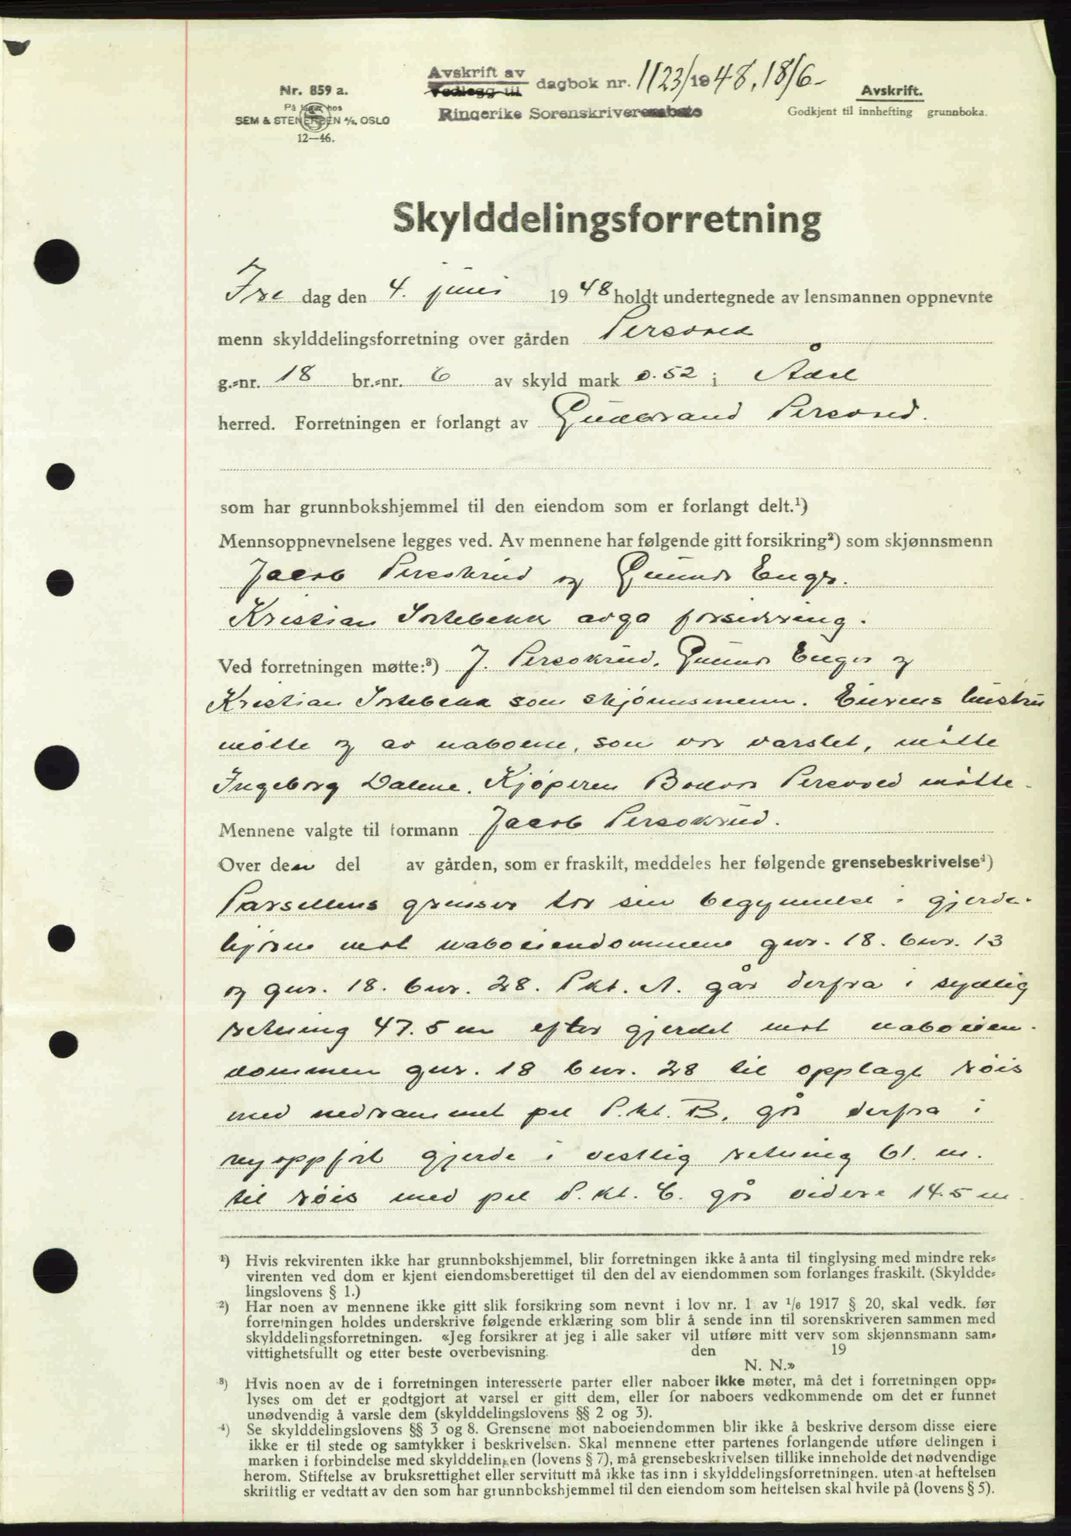 Nr. 859 a.
På lager hos
SEM & STENERSEN A/S, OSLO
12—46.
Avskrift av
Vedlegg til
dagbok nr. 1123/1948, 18/6-
Ringerike Sorenskriverembete
Avskrift.
Godkjent til innhefting grunnboka.
Skylddelingsforretning
Fre dag den 4. juni 1948 holdt undertegnede av lensmannen oppnevnte
menn skylddelingsforretning over gården Persvold
g.-nr. 18 br.-nr. 6 av skyld mark 0.52 i Ådal
herred. Forretningen er forlangt av Gudbrand Persvold.
som har grunnbokshjemmel til den eiendom som er forlangt delt.¹)
Mennsoppnevnelsene legges ved. Av mennene har følgende gitt forsikring²) som skjønnsmenn
Jacob Perskrud og Gunnar Enger.
Kristian avga forsikring.
Ved forretningen møtte:³) J. Gunnar Enger og
Kristian som skjønnsmenn. Eierens hustru
møtte og av naboene, som var varslet, møtte
Ingeborg Dalene. Kjøperen Bodvar Persvold møtte.
Mennene valgte til formann Jacob
Over den del av gården, som er fraskilt, meddeles her følgende grensebeskrivelse⁴)
Parsellens grenser tar sin begynnelse i gjerde-
hjørne mot naboeiendommene gnr. 18. bnr. 13
og gnr. 18. bnr. 28. Pkt. A. går derfra i sydlig
retning 47.5 m efter gjerdet mot naboeien-
dommen gnr. 18 bnr. 28 til opplagt røis
med nedrammet pel P.kt. B, går derfra i
ny oppført gjerde i vestlig retning 61. m.
til røis med pel P.kt. C. går videre 14.5 m
¹) Hvis rekvirenten ikke har grunnbokshjemmel, blir forretningen ikke å anta til tinglysing med mindre rek-
virenten ved dom er kjent eiendomsberettiget til den del av eiendommen som forlanges fraskilt. (Skyldde-
lingslovens § 1.)
²) Har noen av mennene ikke gitt slik forsikring som nevnt i lov nr. 1 av 1/6 1917 § 20, skal vedk. før
forretningen holdes underskrive følgende erklæring som blir å sende inn til sorenskriveren sammen med
skylddelingsforretningen. «Jeg forsikrer at jeg i alle saker vil utføre mitt verv som skjønnsmann sam-
vittighetsfullt og etter beste overbevisning. den 19
N. N.»
³) Hvis noen av de i forretningen interesserte parter eller naboer ikke møter, må det i forretningen opp-
lyses om det er godtgjort at varsel er gitt dem, eller for naboers vedkommende om det er funnet
unødvendig å varsle dem (skylddelingslovens §§ 2 og 3).
⁴) Se skylddelingslovens §§ 3 og 8. Grensene mot naboeiendommen blir ikke å beskrive dersom disse eiere
ikke er til stede og samtykker i beskrivelsen. Skal mennene etter partenes forlangende utføre delingen i
marken i forbindelse med skylddelingen (lovens § 7), må grensebeskrivelsen tillike inneholde det nødvendige
herom. Stiftelse av bruksrettighet eller servitutt må ikke tas inn i skylddelingsforretningen, uten at heftelsen
skriftlig er vedtatt av den som har grunnbokshjemmel til den eiendom som heftelsen skal hvile på (lovens § 5).